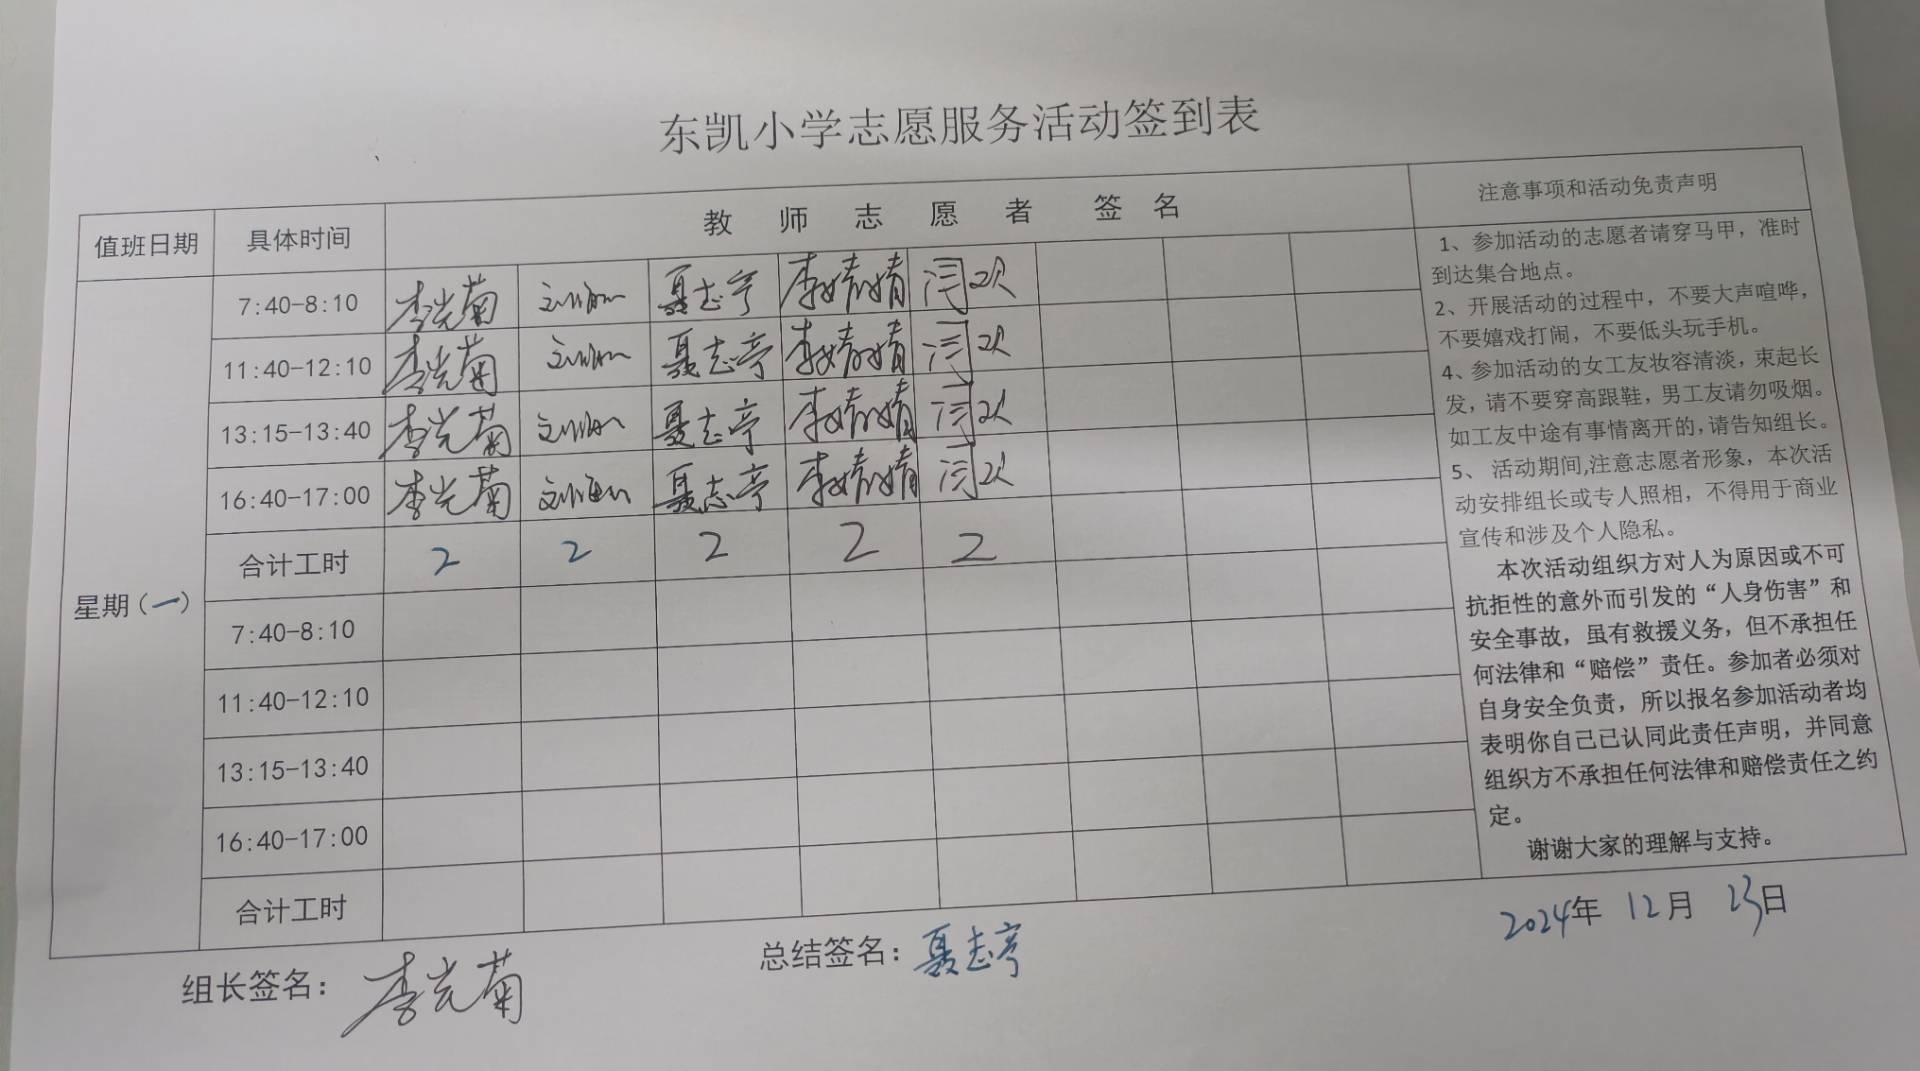 东凯小学志愿服务活动签到表
值班日期 具体时间 教师志愿者 签名 注意事项和活动免责声明
星期(一)
7:40-8:10 李光菊 聂志亭 李婧婧 闫欢
11:40-12:10 李光菊 聂志亭 李婧婧 闫欢
13:15-13:40 李光菊 聂志亭 李婧婧 闫欢
16:40-17:00 李光菊 聂志亭 李婧婧 闫欢
合计工时 2 2 2 2 2
7:40-8:10
11:40-12:10
13:15-13:40
16:40-17:00
合计工时
1、参加活动的志愿者请穿马甲，准时
到达集合地点。
2、开展活动的过程中，不要大声喧哗，
不要嬉戏打闹，不要低头玩手机。
4、参加活动的女工友妆容清淡，束起长
发，请不要穿高跟鞋，男工友请勿吸烟。
如工友中途有事情离开的,请告知组长。
5、 活动期间,注意志愿者形象，本次活
动安排组长或专人照相，不得用于商业
宣传和涉及个人隐私。
本次活动组织方对人为原因或不可
抗拒性的意外而引发的“人身伤害”和
安全事故，虽有救援义务，但不承担任
何法律和“赔偿”责任。参加者必须对
自身安全负责，所以报名参加活动者均
表明你自己已认同此责任声明，并同意
组织方不承担任何法律和赔偿责任之约
定。
谢谢大家的理解与支持。
组长签名：李光菊 总结签名：聂志亭 2024年 12月 23日